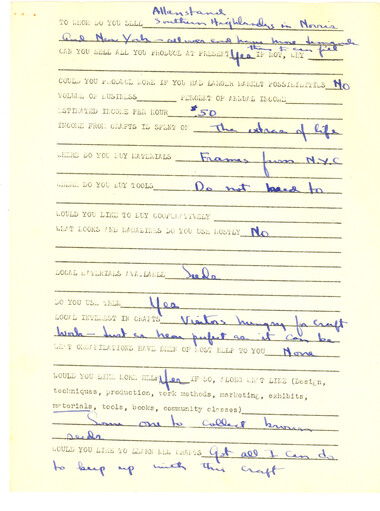 Allanstand
TO WHOM DO YOU SELL Southern Highlanders in Norris
and New York - all over and have more demands
than I can fill
CAN YOU SELL ALL YOU PRODUCE AT PRESENT Yes IF NOT, WHY
COULD YOU PRODUCE MORE IF YOU HAD LARGER MARKET POSSIBILITIES No
VOLUME OF BUSINESS PERCENT OF ANNUAL INCOME
ESTIMATED INCOME PER HOUR $50
INCOME FROM CRAFTS IS SPENT ON The extras of life
WHERE DO YOU BUY MATERIALS Frames from N.Y.C
WHERE DO YOU BUY TOOLS Do not need to
WOULD YOU LIKE TO BUY COOPERATIVELY
WHAT BOOKS AND MAGAZINES DO YOU USE MOSTLY No
LOCAL MATERIALS AVAILABLE Seeds
DO YOU USE THEM Yes
LOCAL INTEREST IN CRAFTS Visitors hungry for craft
work - Just as near perfect as it can be
WHAT ORGANIZATIONS HAVE BEEN OF MOST HELP TO YOU None
WOULD YOU LIKE MORE HELP Yes IF SO, ALONG WHAT LINE (Design,
techniques, production, work methods, marketing, exhibits,
materials, tools, books, community classes)
Some one to collect brown
seeds
WOULD YOU LIKE TO LEARN NEW CRAFTS Got all I can do
to keep up with this craft